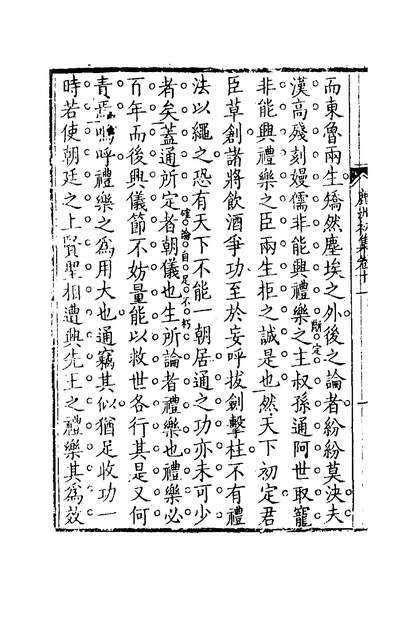 鹿洲初集卷十一
而東魯兩生矯然塵埃之外後之論者紛紛莫決夫
漢高殘刻嫚儒非能興禮樂之主叔孫通阿世取寵
斷定
非能興禮樂之臣兩生拒之誠是也然天下初定君
臣草創諸將飲酒爭功至於妄呼拔劍擊柱不有禮
法以繩之恐有天下不能一朝居通之功亦未可少
確論自足不朽
者矣蓋通所定者朝儀也生所論者禮樂也禮樂必
百年而後興儀節不妨量能以救世各行其是又何
責焉嗚呼禮樂之為用大也通竊其似猶足收功一
時若使朝廷之上賢聖相遭興先王之禮樂其為效